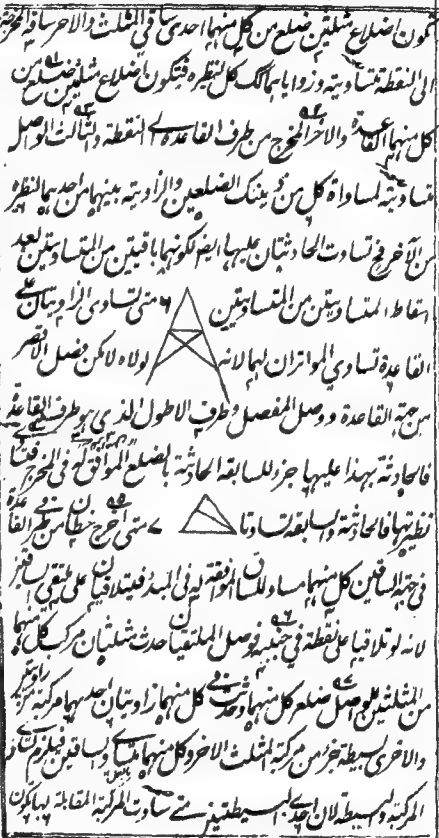 تكون اضلاع مثلثين ضلع من كل منهما احدى ساقي المثلث والاخر ساقه المخرجة
الى النقطة متساوية وزواياهما كل لنظيره فتكون اضلاع مثلثين ضلع من
كل منهما القاعدة والاخر المخرج من طرف القاعدة الى النقطة والثالث الواصل
متساوية لمساواة كل من ذينك الضلعين والزاوية بينهما من احدهما لنظيره
من الآخر فح تساوت الحادثتان عليها ايضا لكونهما باقيتين من المتساويتين بعد
اسقاط المتساويتين من المتساويتين ٦ متى تساوى الزاويتان على
القاعدة تساوي الموتران لهما لانه لولاه لامكن فصل الاقصر
من جهة القاعدة ووصل المفصل وطرف الاطول الذي هو طرف القاعدة
فالحادثة بهذا عليها جزء للسابقة الحادثة بالضلع الموافق له في المخرج
نظيرتها فالحادثة والسابقة تساوتا ٧ متى اخرج خطان من طرفي القاعدة
في جهة الساقين كل منهما مساو للساق الموافقة له في المبدء فيتلاقيان على ملتقى الساقين
لانه لو تلاقيا على نقطة في جنبه فوصل الملتقيان حدث مثلثان مركب كل منهما
من المثلثين بوصل ضلع كل منهما وحدث في كل منهما زاويتان احدهما مركبة
والاخرى بسيطة جزء من مركبة المثلث الاخر وكل منهما متساوي الساقين فيلزم
المركبة والبسيطة لان احدى البسيطتين متى ساوت المركبة المقابلة لها